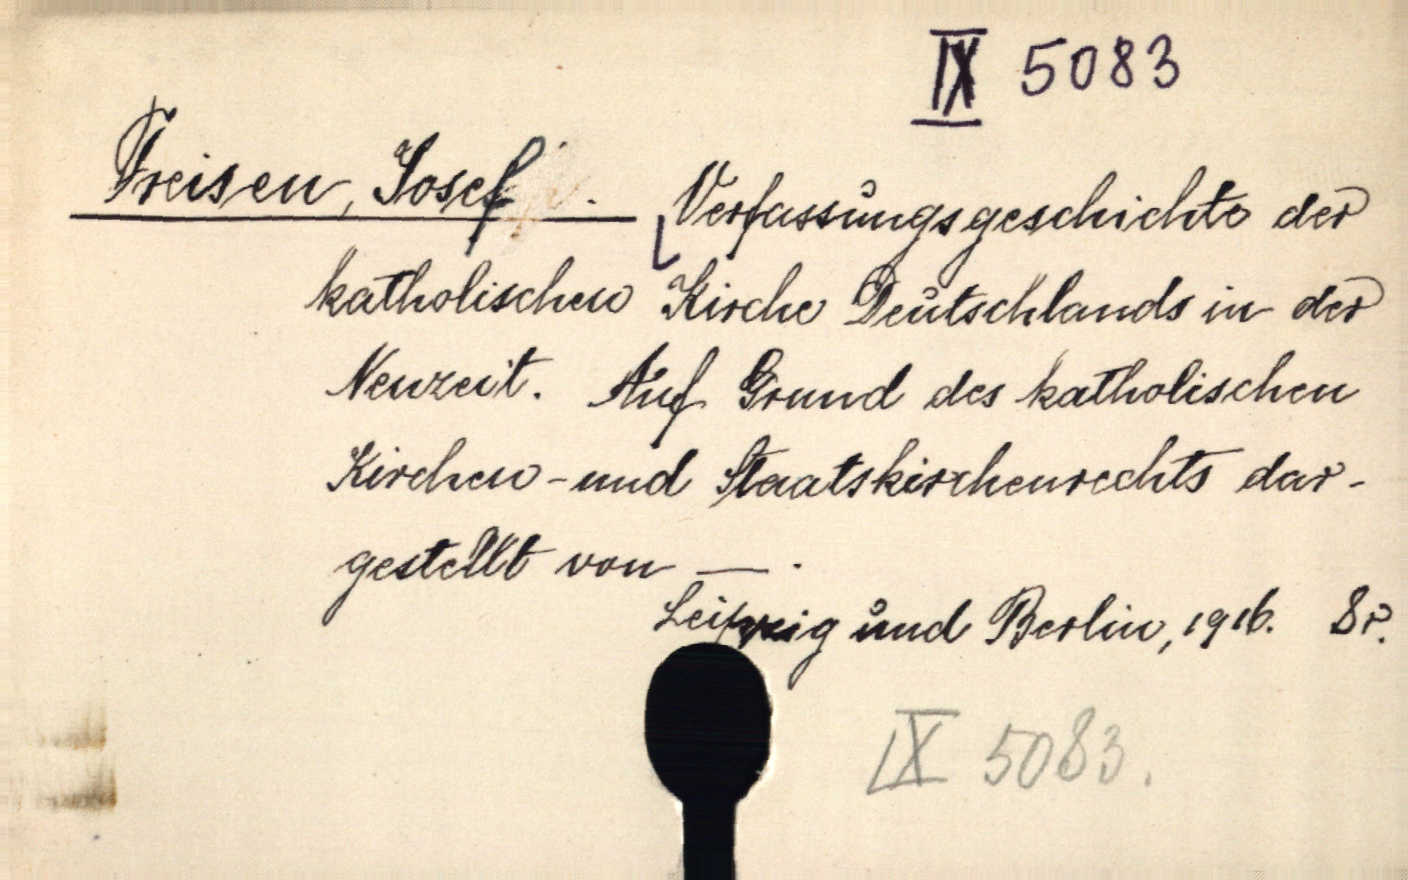 IX 5083
Freisen, Josef. Verfassungsgeschichte der
katholischen Kirche Deutschlands in der
Neuzeit. Auf Grund des katholischen
Kirchen- und Staatskirchenrechts dar-
gestellt von —.
Leipzig und Berlin, 1916. 8r.
IX 5083.